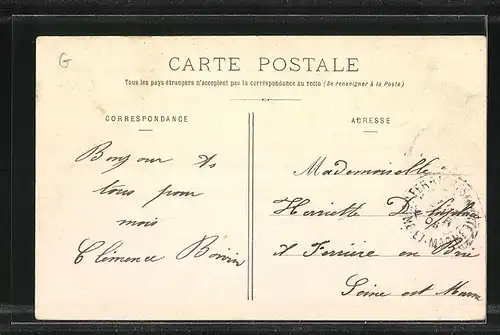 G
CARTE POSTALE
Tous les pays étrangers n'acceptent pas la correspondance au recto (Se renseigner à la Poste)
CORRESPONDANCE
ADRESSE
Bonjour
tous pour
mois
Clémence Boivin
Mademoiselle
Henriette
A Ferrière en Brie
Seine est Marne